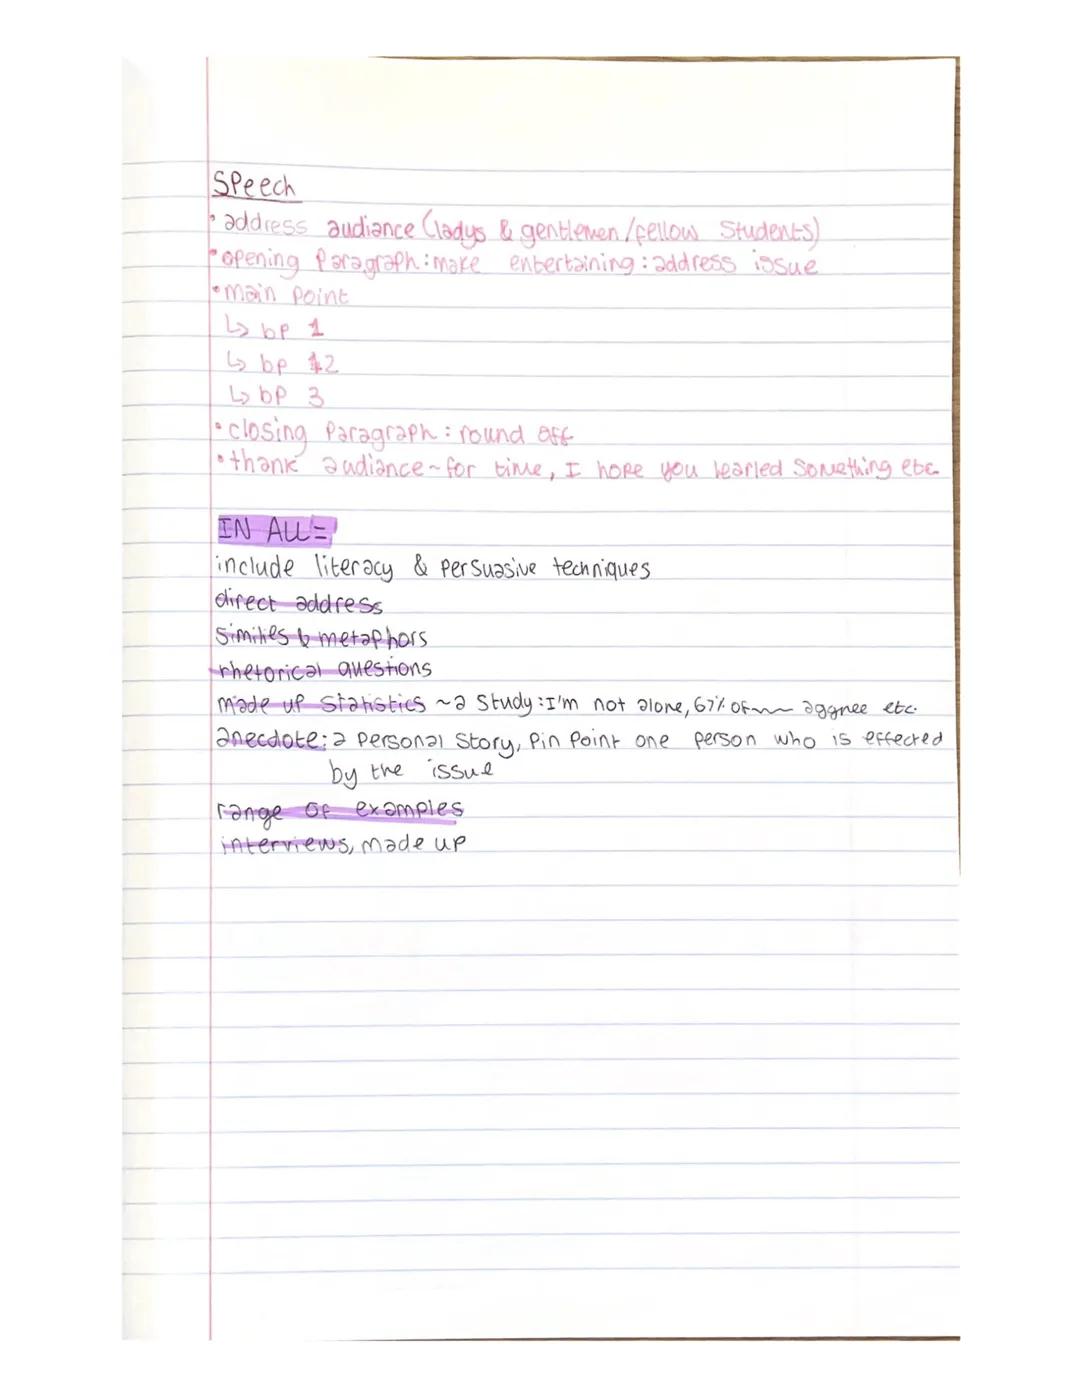 Speech
• address audiance (ladys & gentlemen/fellow Students)
• opening Paragraph: make entertaining: address issue
• main point
↳ bp 1
↳ bp 2
↳ bp 3
• closing Paragraph: round off
• thank audiance ~ for time, I hope you learled Something etc
IN ALL =
include literacy & persuasive techniques
direct address
Similies & metaphors
rhetorical questions
made up Statistics ~ a Study: I'm not alone, 67% of aggree etc.
anecdote: a personal Story, pin point one person who is effected
by the issue
range of examples
interviews, made up